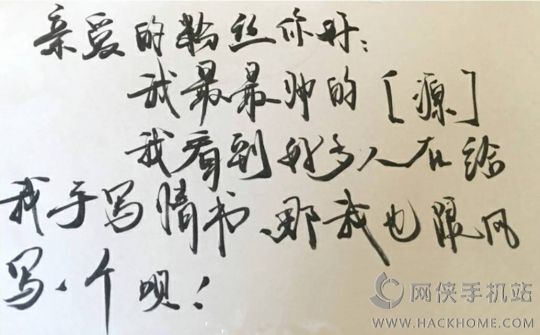 亲爱的粉丝你好：
我最最帅的［源］
我看到好多人在给
我手写情书、那我也跟风
写一个呗！
网侠手机站
WWW.HACKHOME.COM